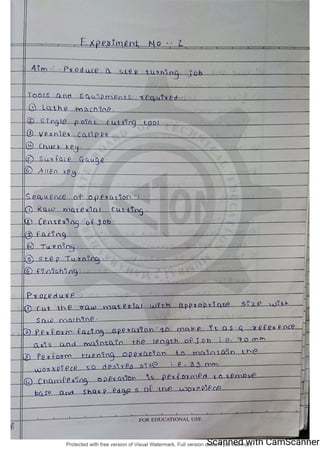 Experiment No :- 2
Aim :- Produce a step turning job
Tools and Equipments required :-
① Lathe machine.
② Single point cutting tool
③ vernier caliper
④ Chuck key
⑤ Surface Gauge
⑥ Allen key
Sequence of operation :-
① Raw material cutting
② Centering of job
③ Facing
④ Turning
⑤ Step Turning
⑥ Finishing
Procedure :
① Cut the raw material with appropriate size with
saw machine.
② Perform facing operation to make it as a reference
axis and maintain the length of job i.e. 70 mm
③ Perform turning operation to maintain the
workpiece to desired size i.e. 33 mm
④ Chamfering operation is performed to remove
and sharp edges of the workpiece
FOR EDUCATIONAL USE
Protected with free version of Visual Watermark. Full version
Scanned with CamScanner